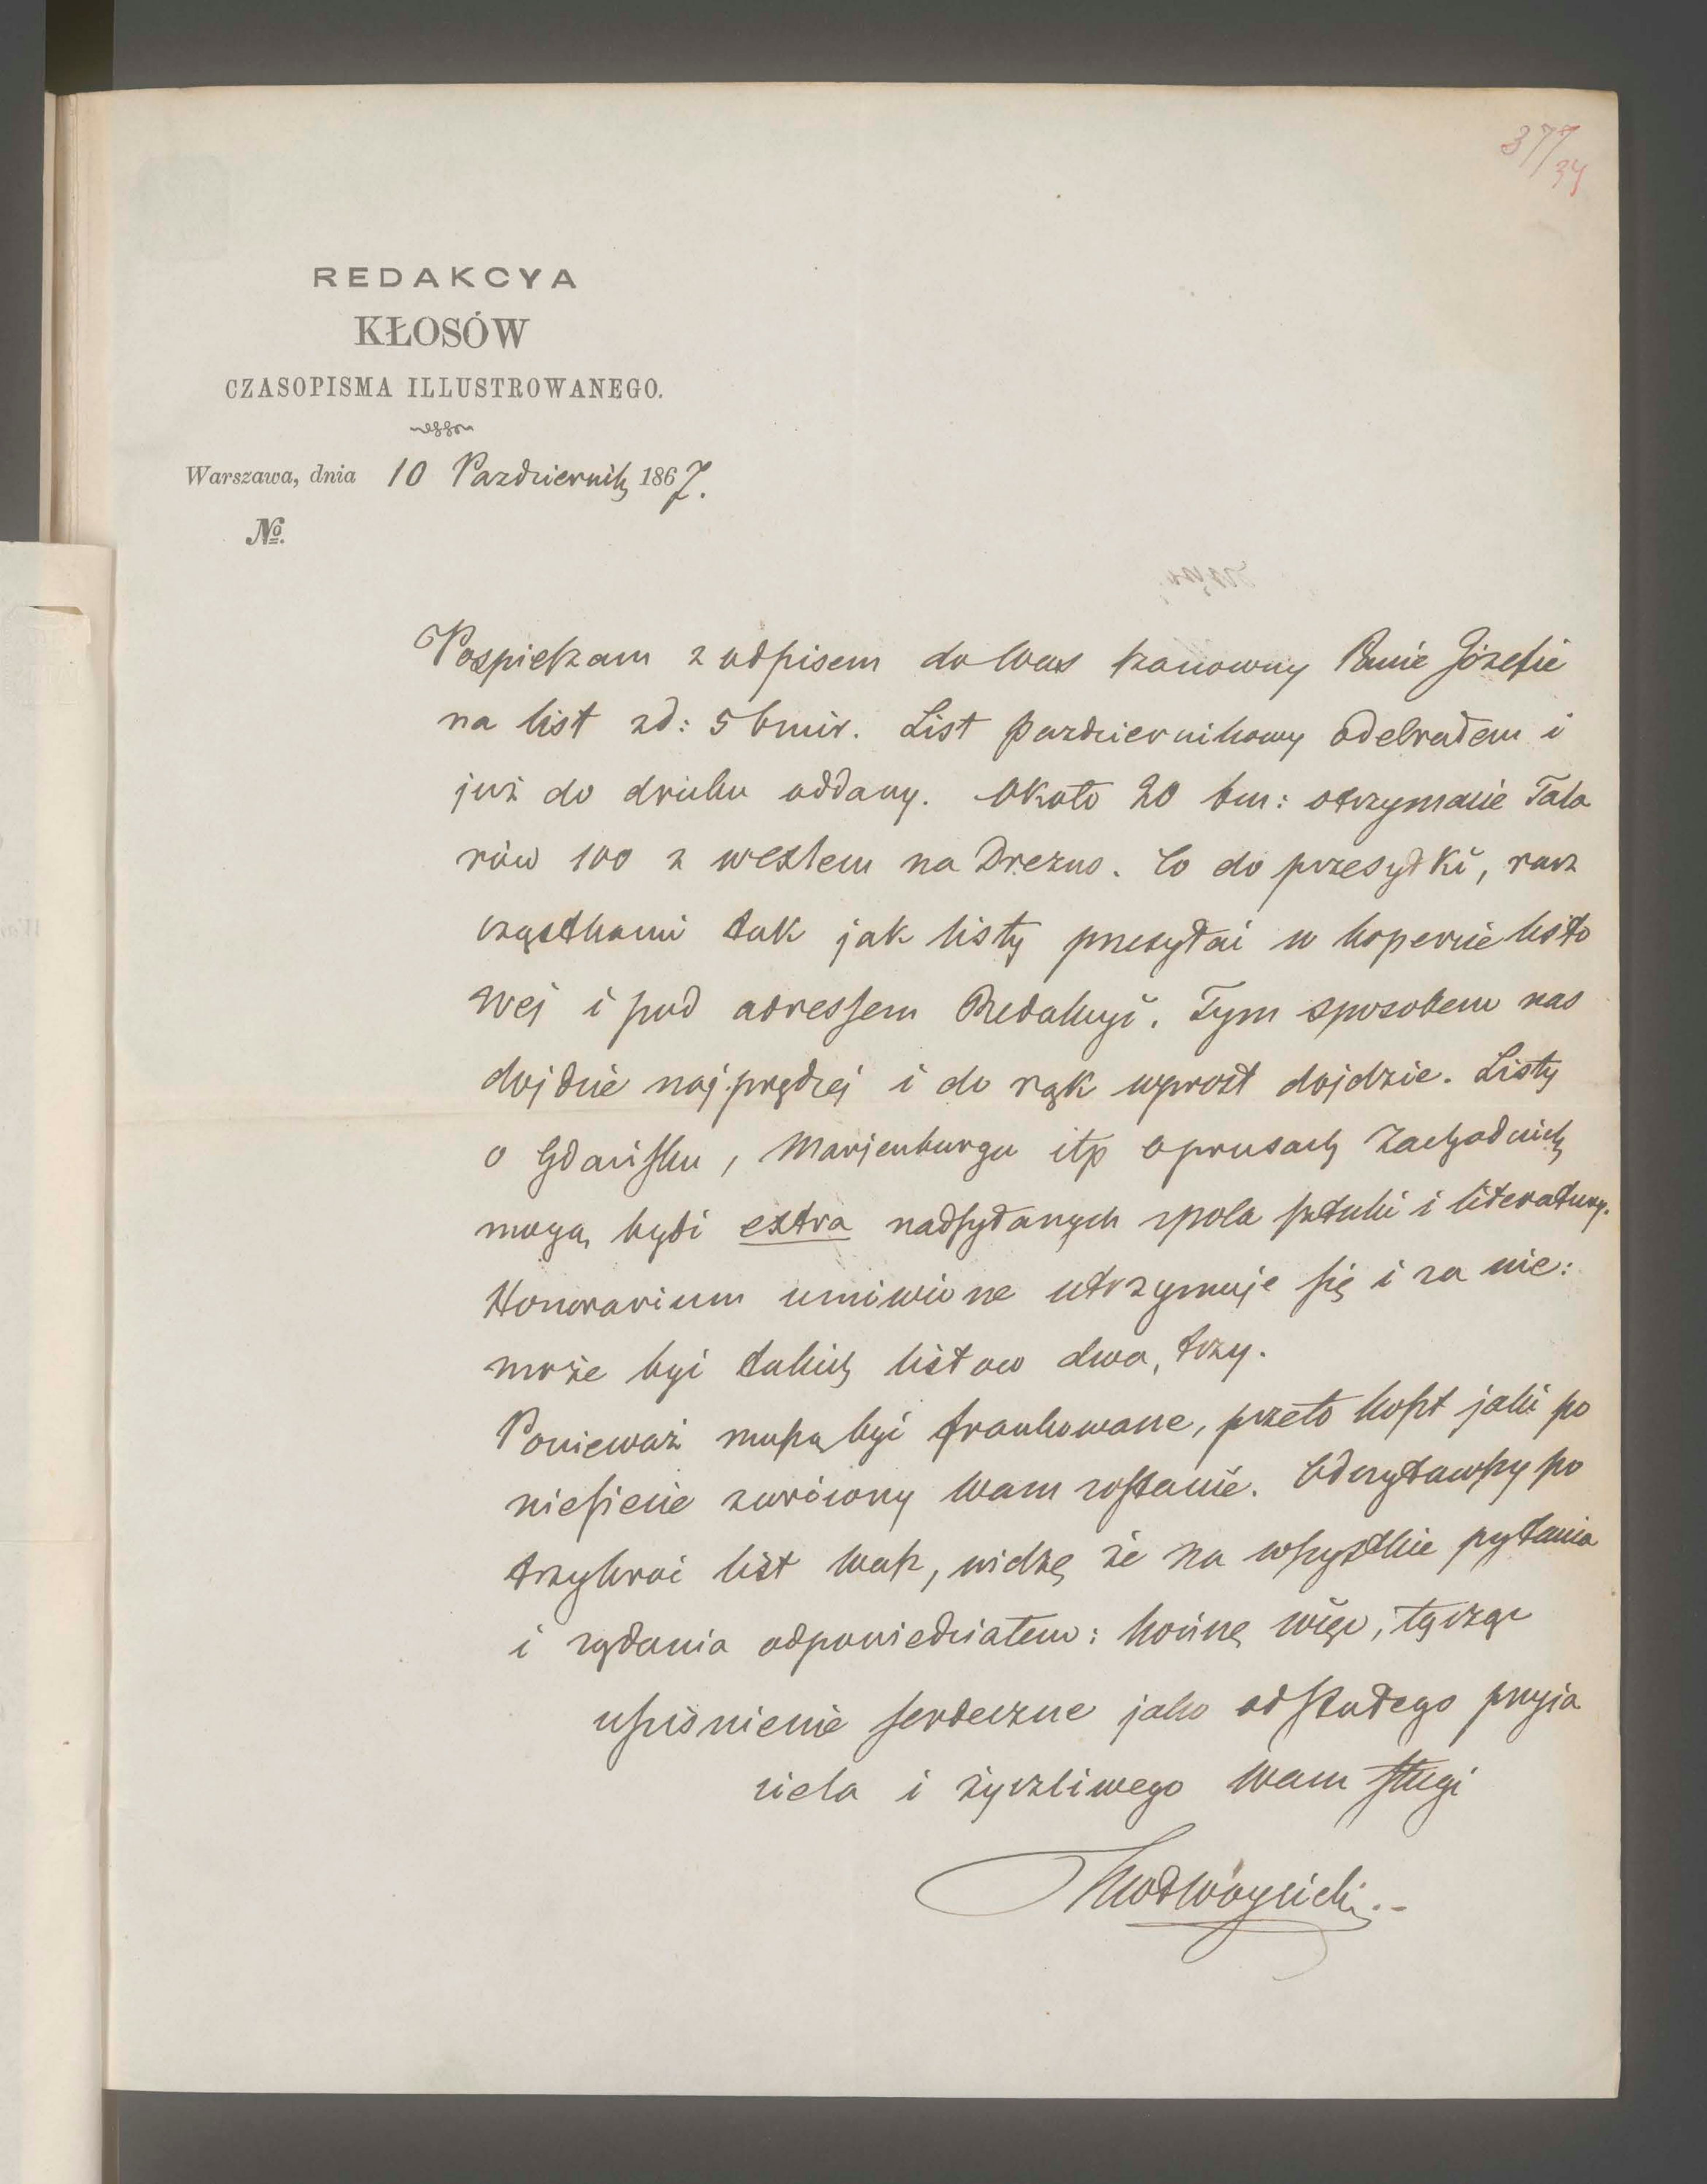 377/34
REDAKCYA
KŁOSÓW
CZASOPISMA ILLUSTROWANEGO.
Warszawa, dnia 10 Pazdziernik 1867.
№
Pospieszam z odpisem do Was szanowny Panie Józefie
na list zd: 5 bmir. List pazdziernikowy odebrałem i
już do druku oddany. Około 20 bm: otrzymacie Tala
rów 100 z wexlem na Drezno. Co do przesyłki, racz
cząstkami tak jak listy przesyłać w kopercie listo
wej i pod adressem Redakcyi. Tym sposobem nas
dojdzie najprędzej i do rąk wprost dojdzie. Listy
o Gdańsku, Marjenburgu itp o prusach Zachodnich
mogą bydź extra nadsyłanych z pola sztuki i literatury.
Honorarium umówione utrzymuje się i za nie:
może być takich listow dwa, trzy.
Ponieważ muszą być frankowane, przeto koszt jaki po
niesiecie zwrócony Wam zostanie. Odczytawszy po
trzykroć list Wasz, widzę że na wszystkie pytania
i rządania odpowiedziałem: kończę więc, łącząc
uściśnienie serdeczne jako od stałego przyja
ciela i życzliwego Wam sługi
KWłWóycicki